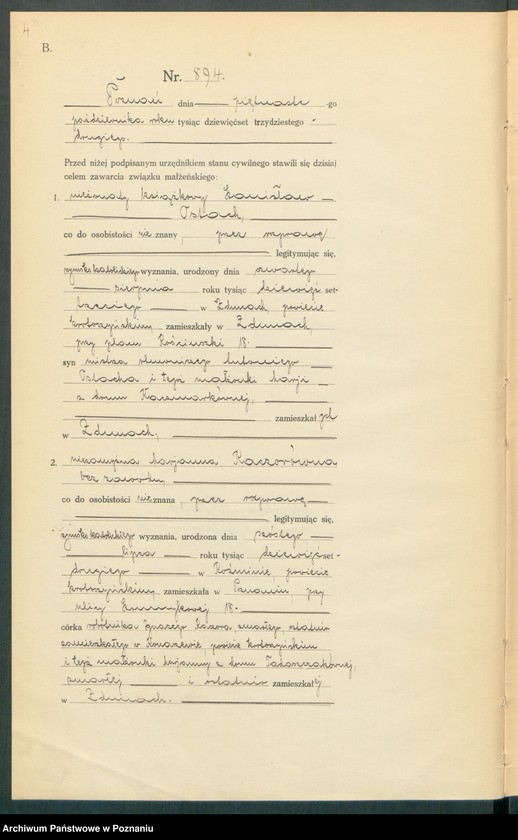 4
B.
Nr. 894.
Poznań dnia piętnaste -go
października roku tysiąc dziewięćset trzydziestego
drugiego.
Przed niżej podpisanym urzędnikiem stanu cywilnego stawili się dzisiaj
celem zawarcia związku małżeńskiego:
1. nieżonaty książkowy Stanisław
Ostach,
co do osobistości nie znany, przez rozprawę
legitymując się,
rzymsko katolickiego wyznania, urodzony dnia
sierpnia roku tysiąc dziewięć set-
trzeciego w Zdunach, powiecie
krotoszyńskim, zamieszkały w Zdunach,
przy placu Kościuszki 18.
syn mistrza Antoniego
Ostacha i tegoż małżonki Marji
z domu Kaczmarkównej,
zamieszkałych
w Zdunach,
2. niezamężna Marjanna Kaczorówna
bez zawodu,
co do osobistości nie znana, przez rozprawę
legitymując się,
rzymsko katolickiego wyznania, urodzona dnia szóstego
lipca roku tysiąc dziewięćset-
drugiego w Koźminie, powiecie
krotoszyńskim zamieszkała w Poznaniu, przy
ulicy 18.
córka robotnika Ignacego Kaczora zmarłego, ostatnio
zamieszkałego w powiecie krotoszyńskim
i tegoż małżonki Marjanny z domu
zmarłej i ostatnio zamieszkałej
w Zdunach.
Archiwum Państwowe w Poznaniu